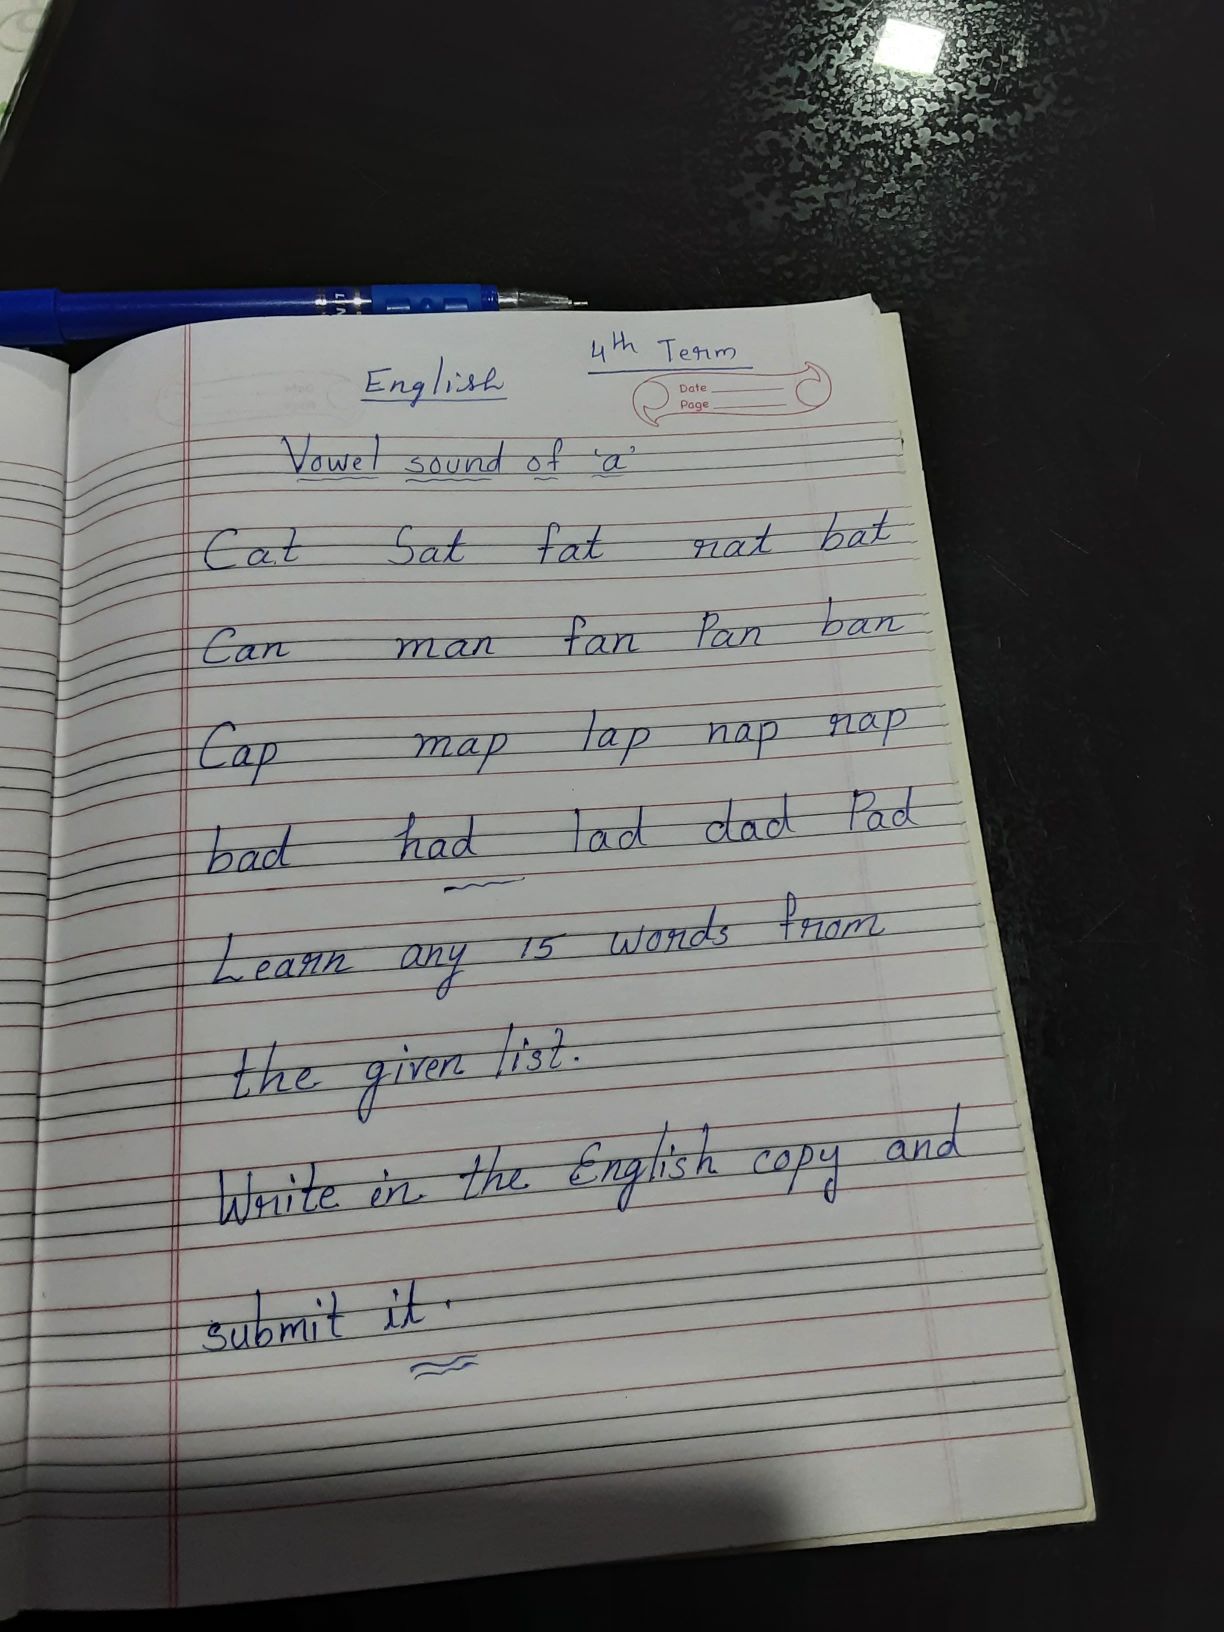 4th Term
English
Date
Page
Vowel sound of 'a'
Cat Sat fat rat bat
Can man fan Pan ban
Cap map lap nap rap
bad had lad dad Pad
Learn any 15 words from
the given list.
Write in the English copy and
submit it.